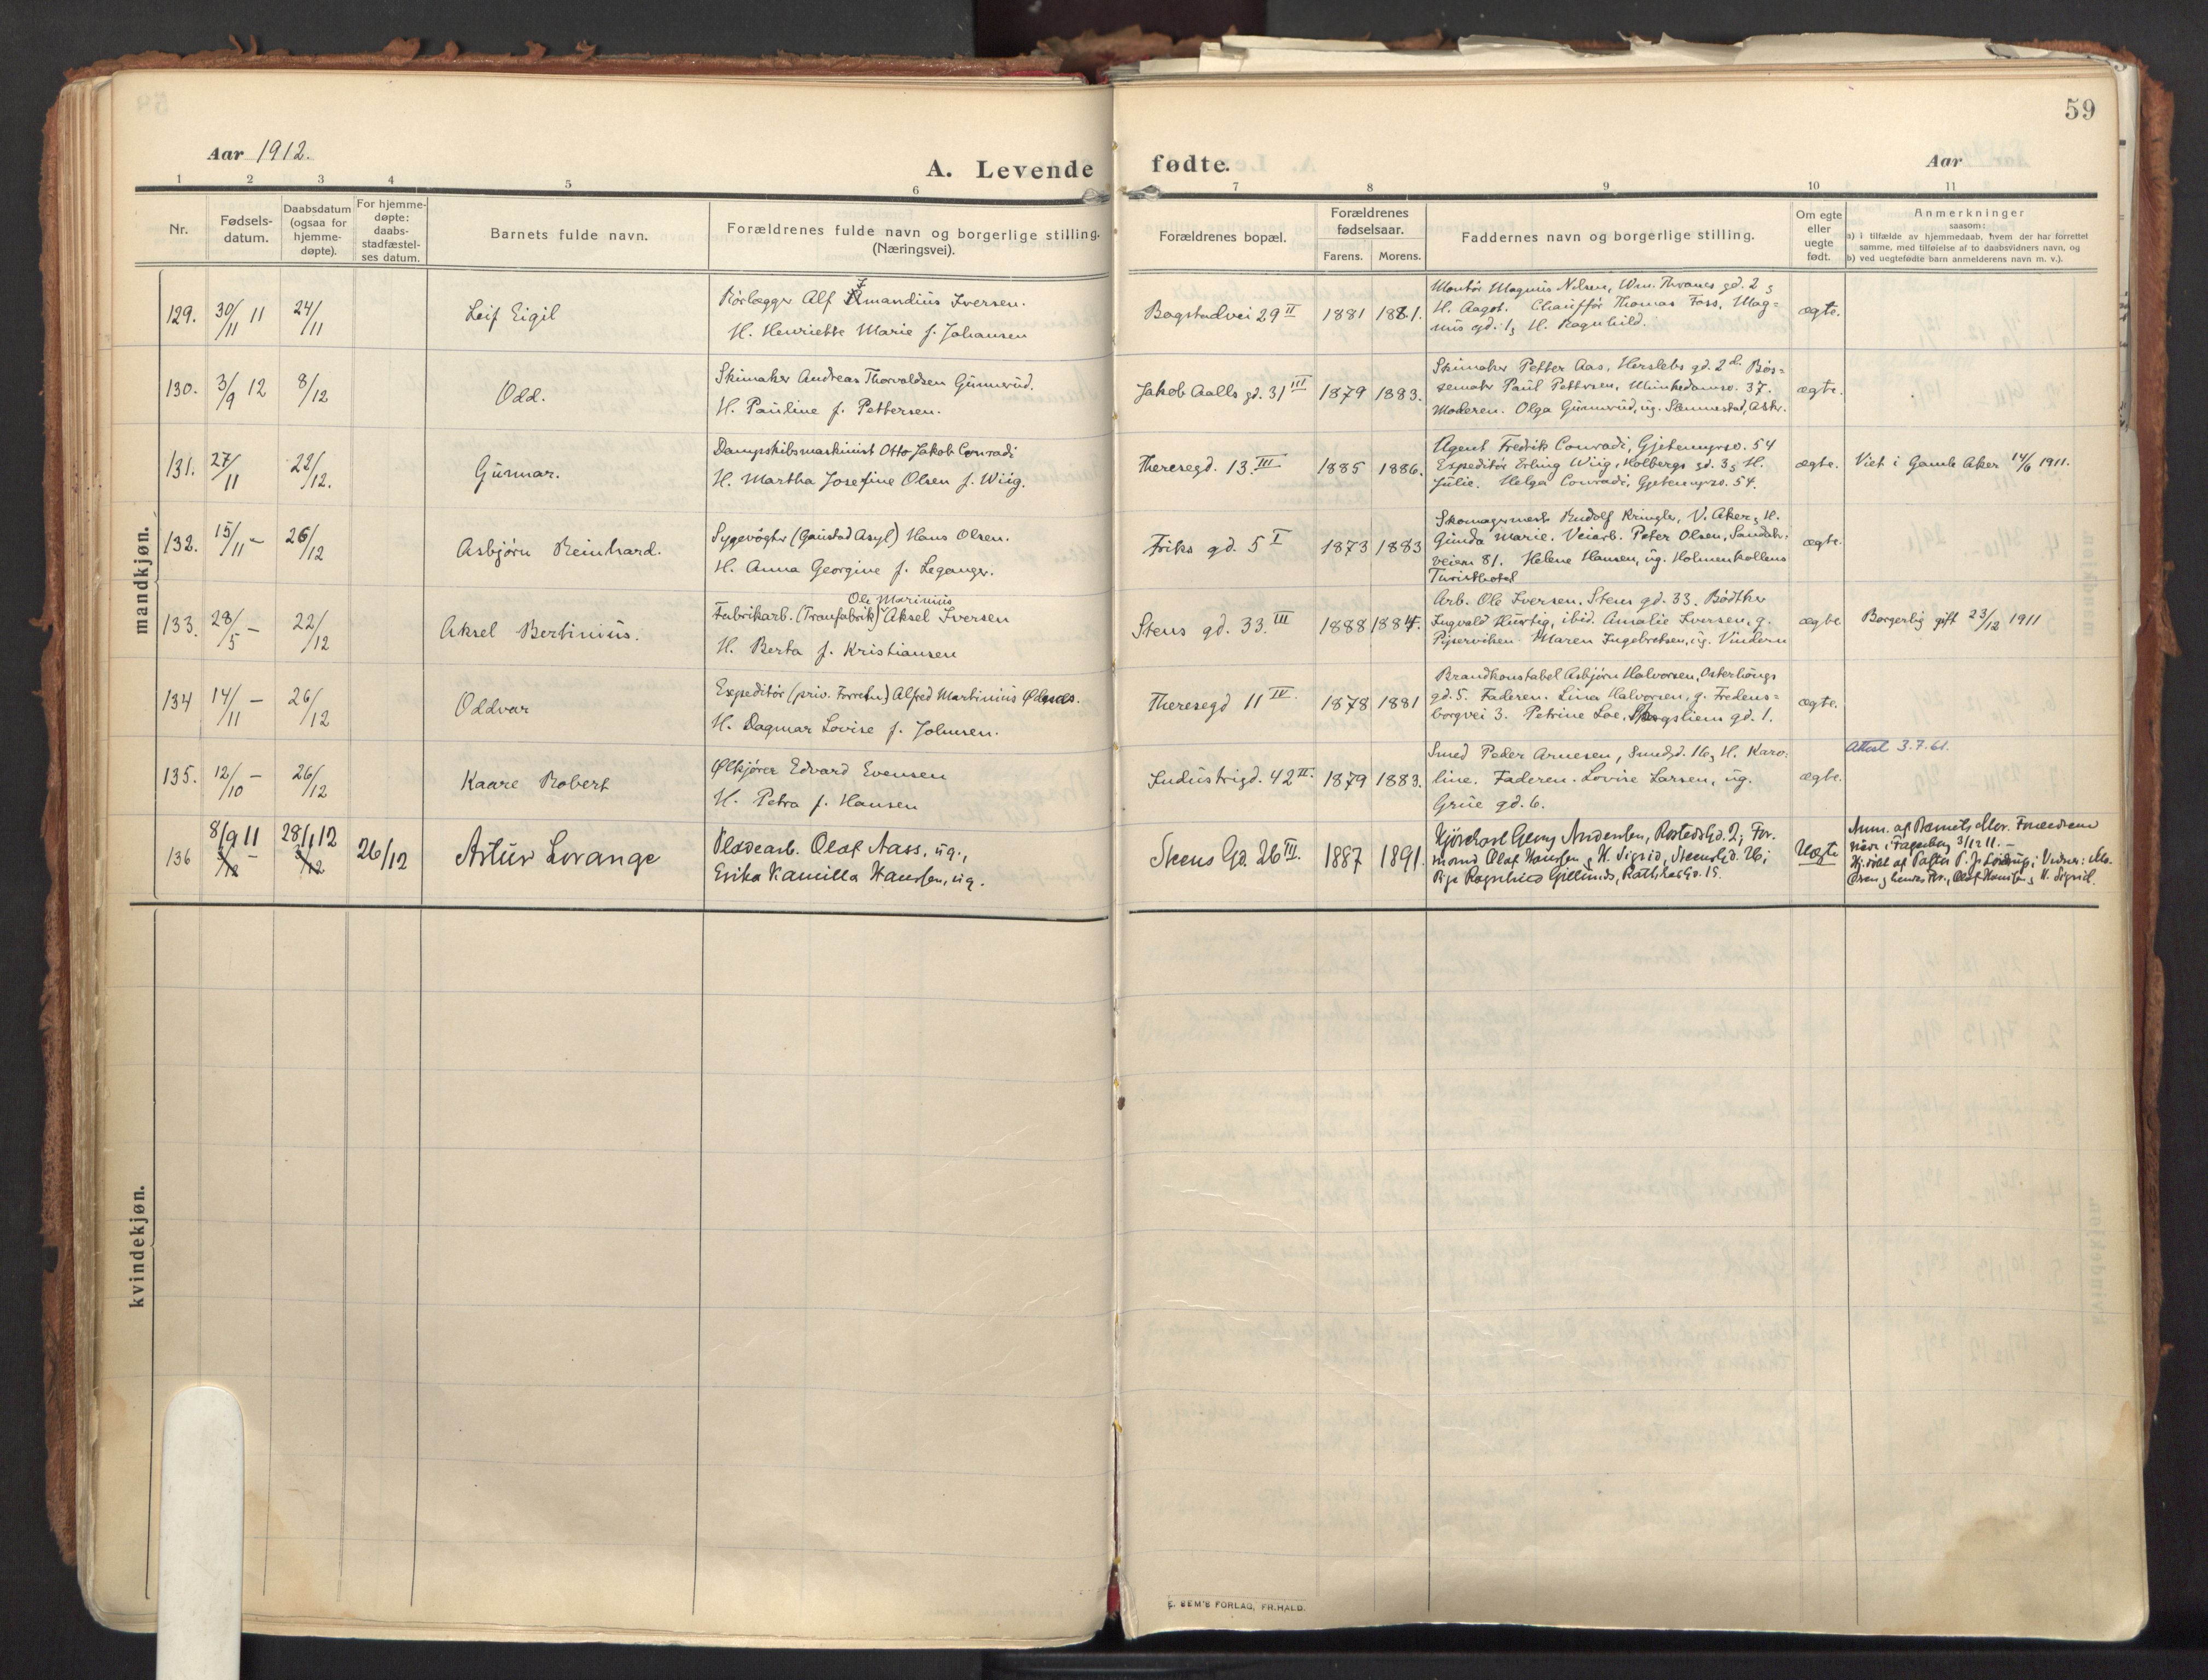 59
Aar 1912.
A. Levende fødte.
Aar
1 2 3 4 5 6 7 8 9 10 11
Nr.
Fødsels-
datum.
Daabsdatum
(ogsaa for
hjemme-
døpte).
For hjemme-
døpte:
daabs-
stadfæstel-
ses datum.
Barnets fulde navn.
Forældrenes fulde navn og borgerlige stilling.
(Næringsvei).
Forældrenes bopæl.
Forældrenes
fødselsaar.
Farens. Morens.
Faddernes navn og borgerlige stilling.
Om egte
eller
uegte
født.
Anmerkninger
saasom:
a) i tilfælde av hjemmedaab, hvem der har forrettet
samme, med tilføielse af to daabsvidners navn, og
b) ved uegtefødte barn anmelderens navn m. v.).
mandkjøn.
129. 30/11 11 24/11 Leif Eigil
Rörlægger Alf Amandius Iversen.
H. Henriette Marie f. Johansen
Bogstadvei 29 II 1881 1881.
Montör Magnus Nilsen, Wm. Thranes gd. 2 &
H. Aagot. Chaufför Thomas Foss, Mag=
nus gd. 1 & H. Ragnhild.
ægte.
130. 3/9 12 8/12 Odd.
Skimaker Andreas Thorvaldsen Gunnerud.
H. Pauline f. Pettersen.
Jakob Aalls gd. 31 III 1879 1883.
Skimaker Petter Aas, Herslebs gd. 2 Bös=
semaker Paul Pettersen, Munkedamsv. 37.
Moderen. Olga Gunnerud, ug. Slemmestad, Asker.
ægte.
131. 27/11 22/12. Gunnar.
Dampskibsmaskinist Otto Jakob Conradi
H. Martha Josefine Olsen f. Wiig.
Theresegd. 13. III 1885 1886.
Agent Fredrik Conradi, Gjetemyrsv. 54
Expeditör Erling Wiig, Holbergs gd. 3 & H.
Julie. Helga Conradi, Gjetemyrsv. 54.
ægte. Viet i Gamle Aker 14/6 1911.
132. 15/11 - 26/12 Asbjørn Reinhard.
Sygevögter (Gaustad Asyl) Hans Olsen.
H. Anna Georgine f. Leganger.
Friks gd. 5 I 1873 1883
Skomagermest. Rudolf Kringler, V. Aker & H.
Gunda Marie. Veiarb. Peter Olsen,
veien 81. Helene Hansen, ug. Holmenkollens
Turisthotel
ægte.
133. 28/5 - 22/12 Aksel Bertinius.
Ole Marinius
Fabrikarb. (Tranfabrik) Aksel Iversen
H. Berta f. Kristiansen
Stens gd. 33. III 1888 1884.
Arb. Ole Iversen, Stens gd. 33. Bödtker
Ingvald Hurtig, ibid. Amalie Iversen, g.
Piperviken. Maren Ingebretsen, ug. Vindern
ægte Borgerlig gift 23/12 1911
134 14/11 - 26/12 Oddvar
Expeditör (priv. Forretn) Alfred Martinius
H. Dagmar Lovise f. Johnsen.
Theresegd 11 IV. 1878 1881
Brandkonstabel Asbjørn Halvorsen, Osterhaugs
gd. 5. Faderen. Lina Halvorsen, g. Fredens=
borgvei 3. Petrine Loe, gd. 1.
ægte.
135. 12/10 - 26/12 Kaare Robert
Ølkjører Edvard Evensen
H. Petra f. Hansen
Industrigd. 42 II. 1879 1883.
Smed Peder Arnesen, Smedgd. 16 & H. Karo=
line. Faderen. Lovise Larsen, ug.
Grue gd. 6.
ægte. Attest 3.7.61.
136 8/9 11 28/1 12 26/12 Artur Lorange
Pladearb. Olaf Aass, ug.,
Erika Kamilla Hansen, ug.
Steens Gd. 26 III. 1887 1891.
Georg Andersen, Rosteds Gd. 2; For.
mand Olaf Hansen & H. Sigrid, Steens Gd. 26;
Pige Ragnhild Gillund,
Uægte
Anm. af Barnets Mor.
i Fagerborg 3/12 11. -
Hj. døbt af Pastor
Olaf Hansen & H. Sigrid.
kvindekjøn.
E. SEM'S FORLAG, FR.HALD.